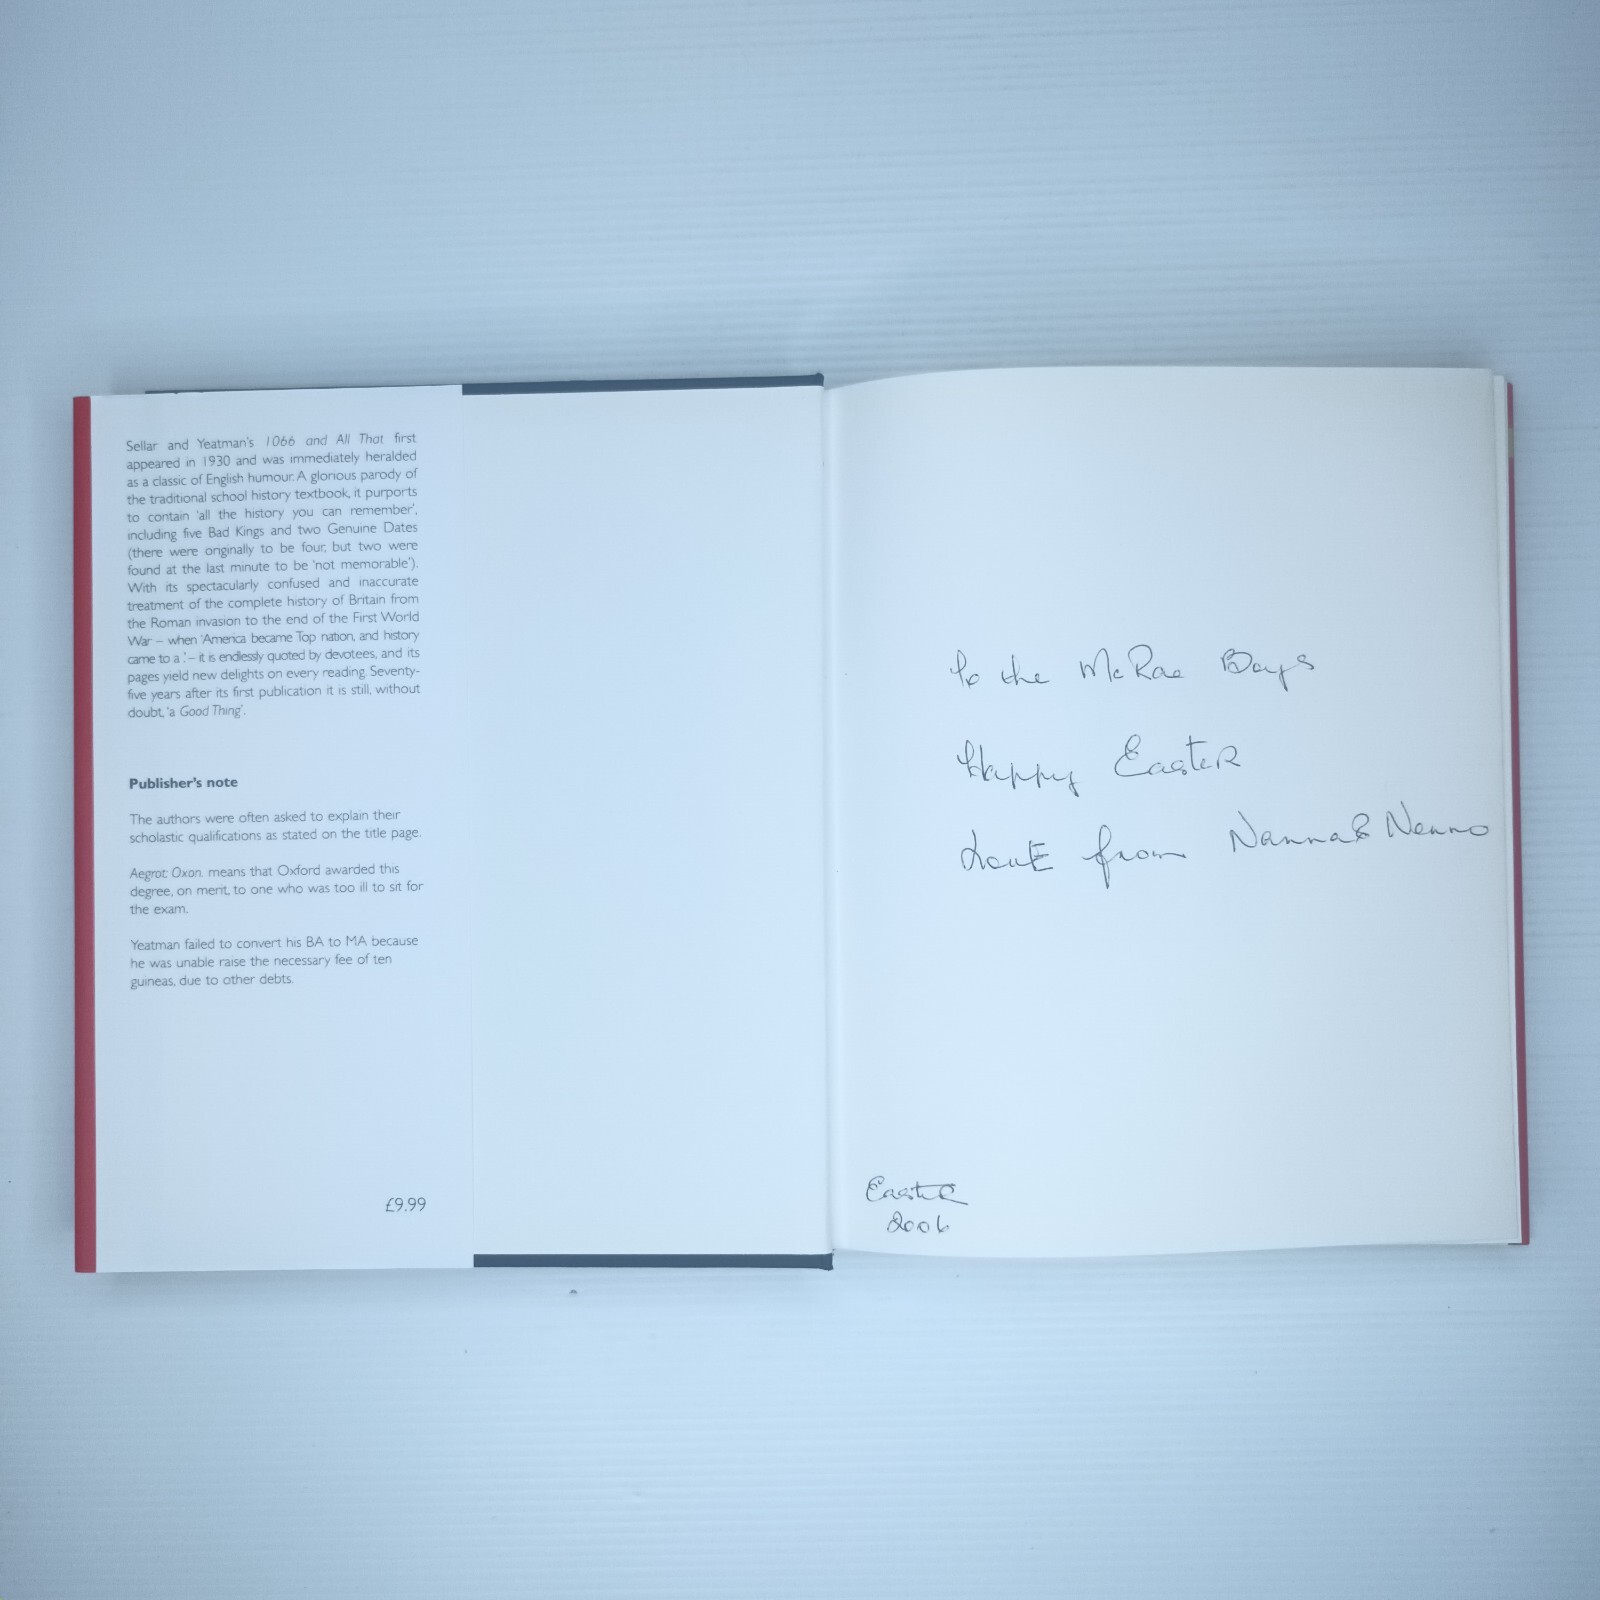 Sellar and Yeatman's 1066 and All That first
appeared in 1930 and was immediately heralded
as a classic of English humour. A glorious parody of
the traditional school history textbook, it purports
to contain 'all the history you can remember',
including five Bad Kings and two Genuine Dates
(there were originally to be four, but two were
found at the last minute to be 'not memorable').
With its spectacularly confused and inaccurate
treatment of the complete history of Britain from
the Roman invasion to the end of the First World
War – when 'America became Top nation, and history
came to a .' – it is endlessly quoted by devotees, and its
pages yield new delights on every reading. Seventy-
five years after its first publication it is still, without
doubt, 'a Good Thing'.
Publisher's note
The authors were often asked to explain their
scholastic qualifications as stated on the title page.
Aegrot: Oxon. means that Oxford awarded this
degree, on merit, to one who was too ill to sit for
the exam.
Yeatman failed to convert his BA to MA because
he was unable raise the necessary fee of ten
guineas, due to other debts.
£9.99
To the McRae Boys
Happy Easter
Love from Nanna & Nanno
Easter
2006